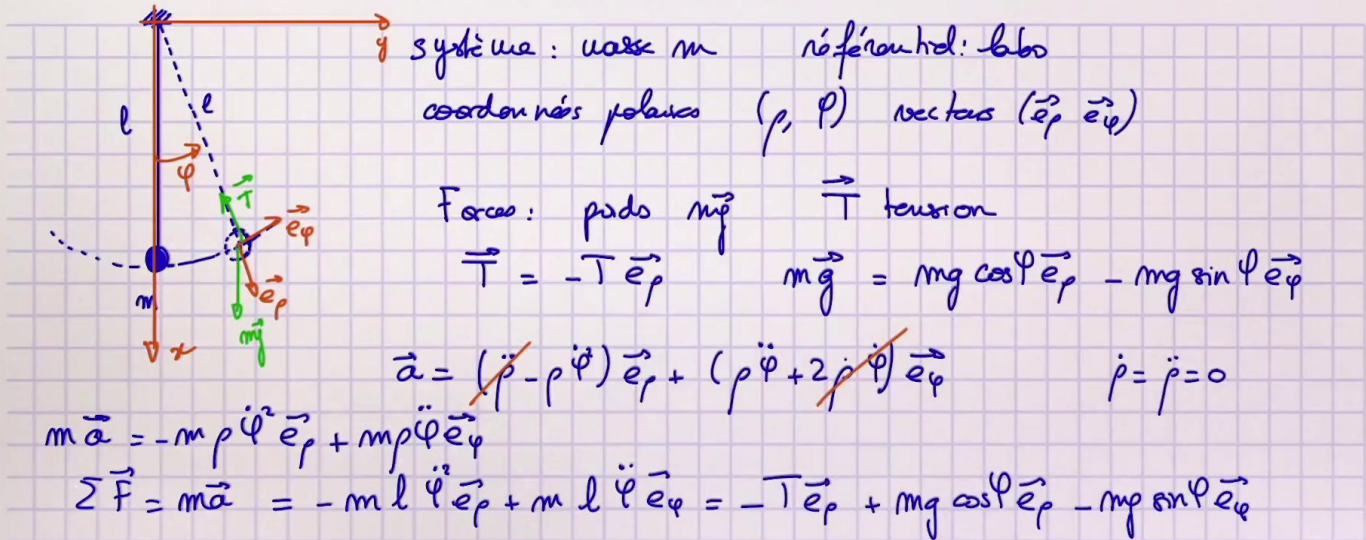 y
système : masse m référentiel : labo
l l
coordonnées polaires (ρ, φ) vecteurs (e⃗ρ e⃗φ)
φ
T⃗
Forces : poids mg⃗ T⃗ tension
e⃗φ
T⃗ = -T e⃗ρ mg⃗ = mg cosφ e⃗ρ - mg sinφ e⃗φ
e⃗ρ
m
mg⃗
x
a⃗ = (ρ̈ - ρφ̇²) e⃗ρ + (ρφ̈ + 2ρ̇φ̇) e⃗φ ρ̇ = ρ̈ = 0
ma⃗ = -mρφ̇² e⃗ρ + mρφ̈ e⃗φ
ΣF⃗ = ma⃗ = -m l φ̇² e⃗ρ + m l φ̈ e⃗φ = -T e⃗ρ + mg cosφ e⃗ρ - mg sinφ e⃗φ